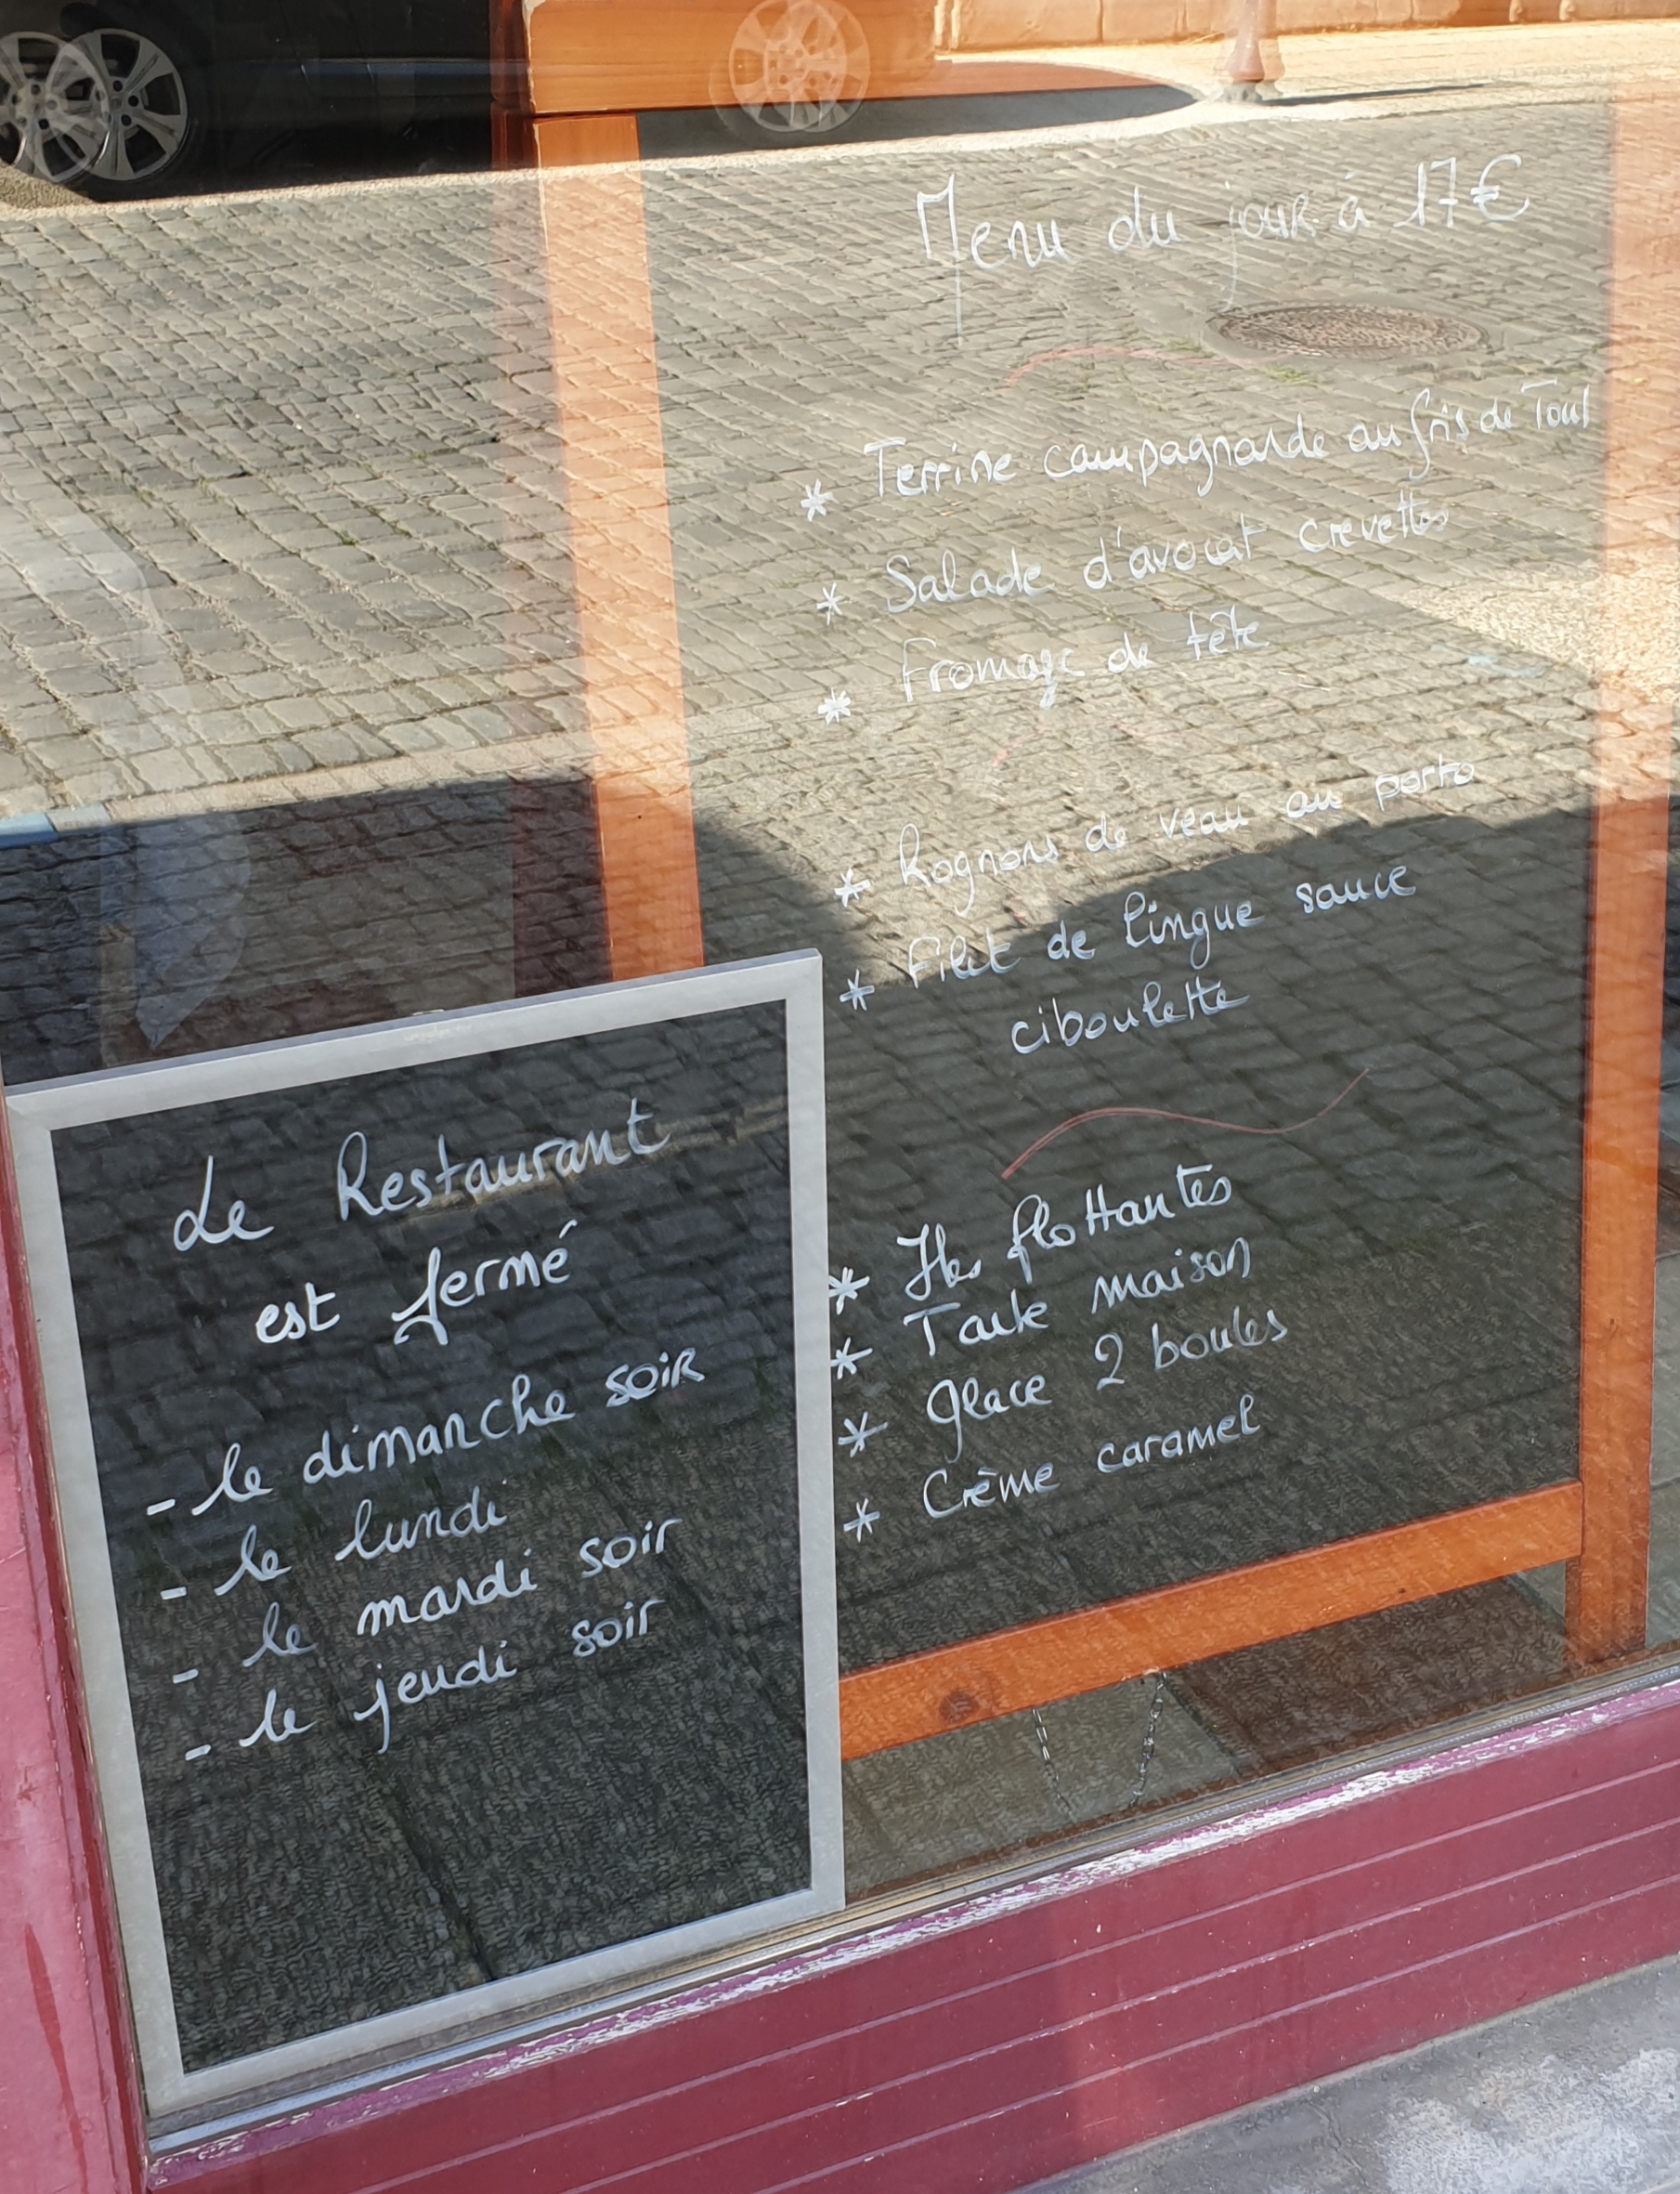 Menu du jour à 17€
* Terrine campagnarde au gris de Toul
* Salade d'avocat crevettes
* Fromage de tête
* Rognons de veau au porto
* Filet de lingue sauce
ciboulette
* Iles flottantes
* Tarte maison
* Glace 2 boules
* Crème caramel
Le Restaurant
est fermé
- le dimanche soir
- le lundi
- le mardi soir
- le jeudi soir